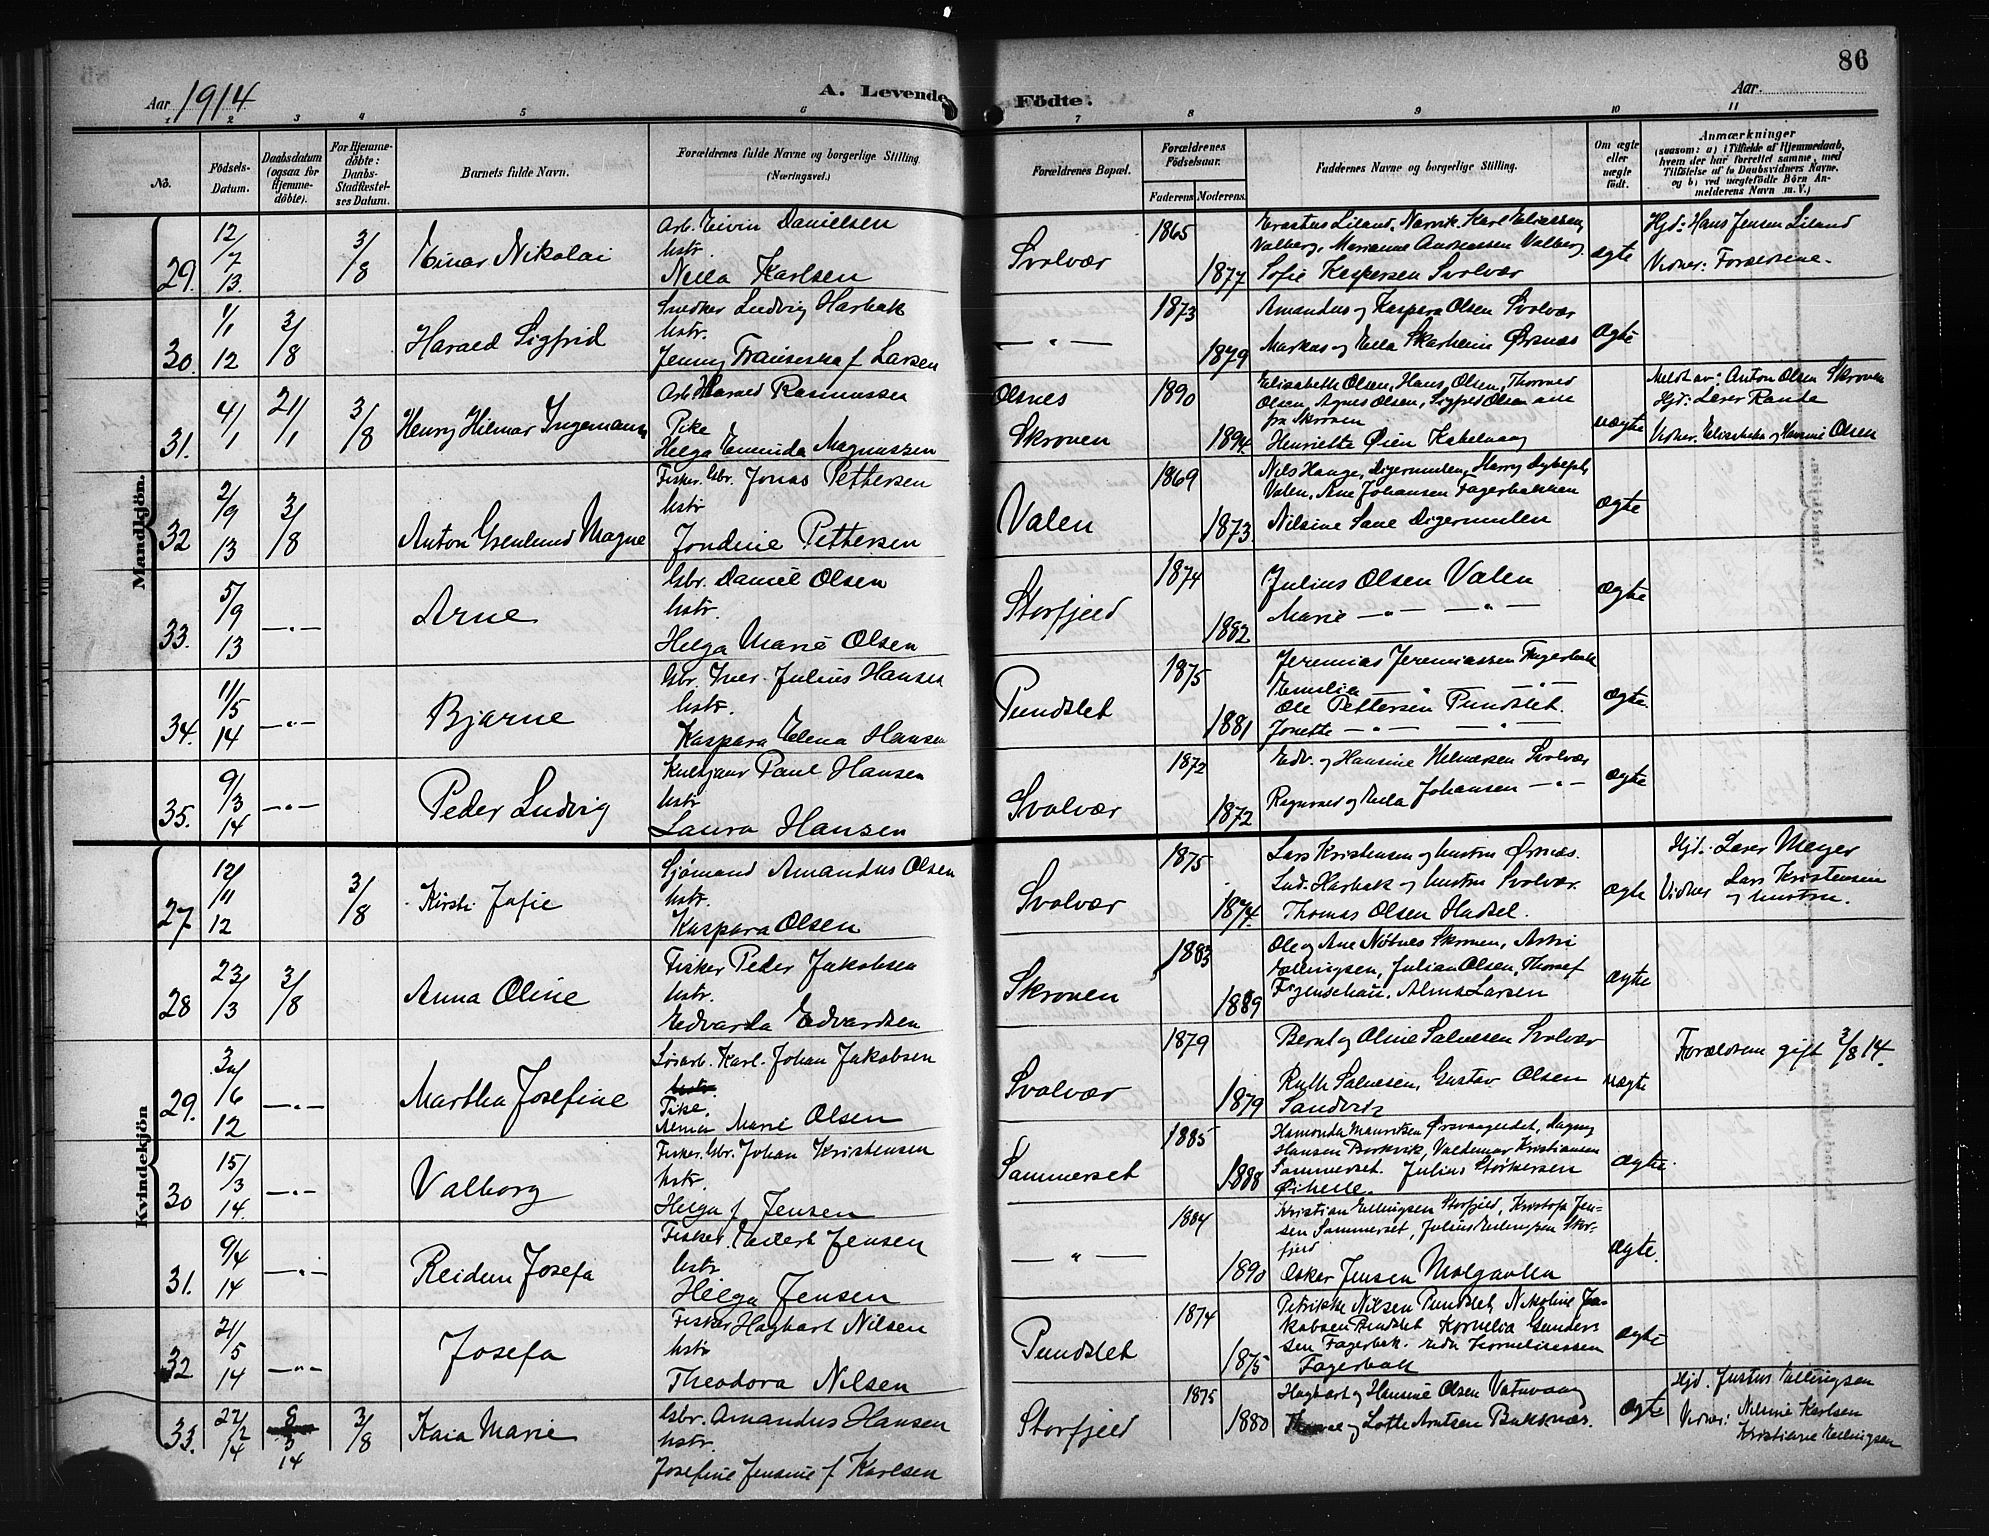 86
Aar 1914
A. Levende Födte.
Aar
1 2 3 4 5 6 7 8 9 10 11
No.
Födsels-Datum.
Daabsdatum (ogsaa for Hjemme-döbte).
For Hjemme-döbte: Daabs-Stadfæstel-ses Datum.
Barnets fulde Navn.
Forældrenes fulde Navne og borgerlige Stilling. (Næringsvei.)
Forældrenes Bopæl.
Forældrenes Födselsaar.
Faderens. Moderens.
Faddernes Navne og borgerlige Stilling.
Om ægte eller uægte födt.
Anmærkninger
(saasom: a) i Tilfælde af Hjemmedaab,
hvem der har forrettet samme, med
Tilföielse af to Daabsvidners Navne,
og b) ved uægtefödte Börn An-
melderens Navn m. V.)
Mandkjön.
29. 12/7 13 3/8 Einar Nikolai
Arb. Eivin Danielsen
hstr.
Karlsen
Svolvær 1865 1877
Erastus Liland, Narvik, Karl Eliassen
Valberg, Marianne Andreassen Valberg,
Sofie Kaspersen Svolvær
ægte
Hjd: Hans Jensen Liland
Vidner: Forældrene.
30. 1/1 12 3/8 Harald Sigfrid
Snedker Ludvig Harbak
hstr.
Jenny f. Larsen
— " — 1873 1879
Amandus og Kaspara Olsen Svolvær
Markus og Ella Skarheim Ørsnes
ægte
31. 4/1 21/1 3/8 Henry Hilmar Ingemann
Arb. Harald Rasmussen
Pike
Helga Eminda Magnussen
Olsnes
Skroven 1890 1894.
Elisabeth Olsen, Hans Olsen, Thorvald
Olsen, Agnes Olsen, Sigfred Olsen alle
fra Skroven
Henriette Øien Kabelvaag
uægte
Meldt av: Anton Olsen Skroven
Hjd: Lærer Randa
Vidner: Elisabeth og Olsen
32 2/9 13 3/8 Anton Grenlund Magne
Fisker. Gbr. Jonas Pettersen
hstr
Jondine Pettersen
Valen 1869 1873.
Nils Hauge, Digermulen, Harry
Valen, Ane Johansen Fagerbakken
Nilsine Sane Digermulen
ægte
33. 5/9 13 —"— Arne
Gbr. Daniel Olsen
hstr.
Helga Marie Olsen
Storfjeld 1874 1882
Julius Olsen Valen
Marie —"— —"—
ægte
34. 11/5 14 —"— Bjarne
Gbr. Iver Julius Hansen
hstr.
Kaspara Elena Hansen
Pundslet 1875 1881
Jeremias Jeremiassen Fagerbak
Emilie —"— —"—
Ole Pettersen Pundslet.
Jonette —"— —"—
ægte.
35. 9/3 14 —"— Peder Ludvig
Paul Hansen
hstr
Laura Hansen
Svolvær 1872 1872
Edv. og Hansine Helmersen Svolvær
Johansen —"—
ægte
Kvindekjön
27 12/11 12 3/8 Kirsti Jofie
Sjømand Amandus Olsen
hstr.
Kaspara Olsen
Svolvær 1875 1874.
Lars Kristensen og hustru Ørsnes.
Lud. Harbak og hustru Svolvær.
Thomas Olsen Hadsel.
ægte
Hjd: Lærer Meyer
Vidner Lars Kristensen
og hustru.
28 23/3 3/8 Anna Oline
Fisker Peder Jakobsen
hstr.
Edvarda Edvardsen
Skroven 1883 1889
Ole og Ane Nøtnes Skroven,
Ellingsen, Julian Olsen,
Figenschau. Alma Larsen
ægte
29. 30/6 12 —"— Martha Josefine
Løsarb. Karl Johan Jakobsen
hstr.
Pike.
Alma Marie Olsen
Svolvær 1879 1879
Bernt og Oline Salvesen Svolvær
Ruth Salvesen, Gustav Olsen
Sandvik
uægte
Forældrene gift 2/8 14.
30 15/3 14. —"— Valborg
Fisker. Gbr. Johan Kristensen
hstr.
Helga f. Jensen
Sammerset 1885 1888
Hamonda Mauritsen Ørsvaageidet, Dagny
Hansen Borkvik, Valdemar Kristiansen
Sammerset. Julius Størkersen
Øihelle.
ægte.
31. 9/4 14 —"— Reidun Josefa
Fisker. Edvart Jensen
hstr
Helga Jensen
— " — 1884 1890
Kristian Ellingsen Storfjeld, Kristofa Jen-
sen Sammerset, Julius Ellingsen Stor-
fjeld
Oskar Jensen Molgavlen
ægte.
32 21/5 14 —"— Josefa
Fisker Hagbart Nilsen
hstr
Theodora Nilsen
Pundslet 1874 1875
Petrikke Nilsen Pundslet, Nikoline Ja-
kobsen Pundslet Kornelia Gunder-
sen Fagerbak. Edv. Korneliussen
Fagerbak
ægte
33. 22/2 14 3/8 Kaia Marie
Gbr. Amandus Hansen
hstr.
Josefine Jensine f. Karlsen
Storfjeld 1875 1880
Hagbart og Hansine Olsen Vatnvaag
og Lotte Arntsen Buksnæs.
ægte
Hjd. Justus Ellingsen
Vidner: Nilsine Karlsen
Kristiane Ellingsen